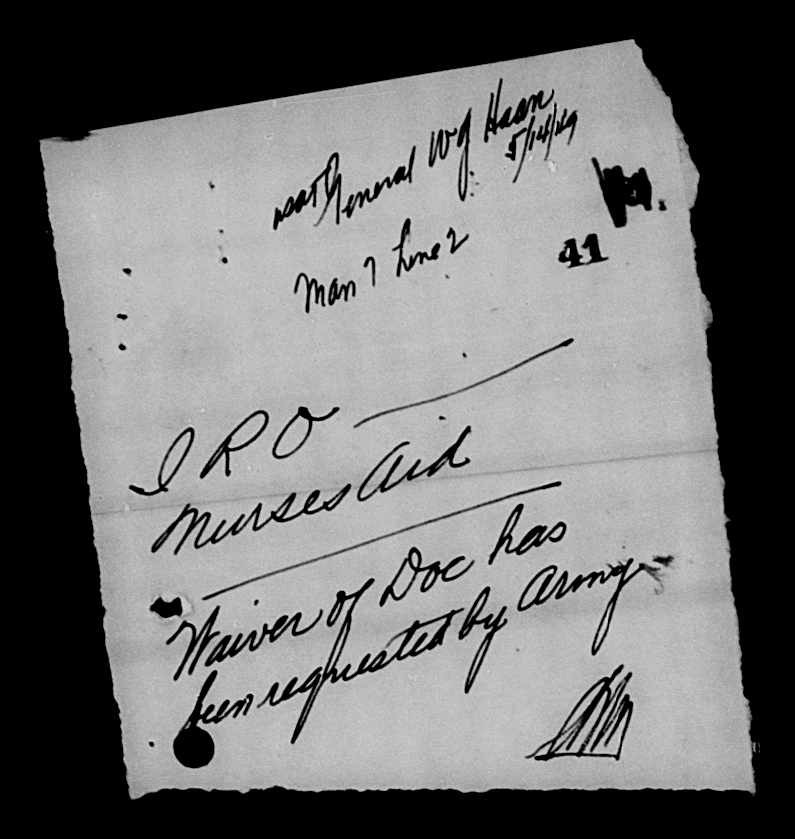 USAT General W g Haan
5/14/49
41
Man 7 Line 2
I R O
Nurses Aid
Waiver of Doc has
been requested by Army